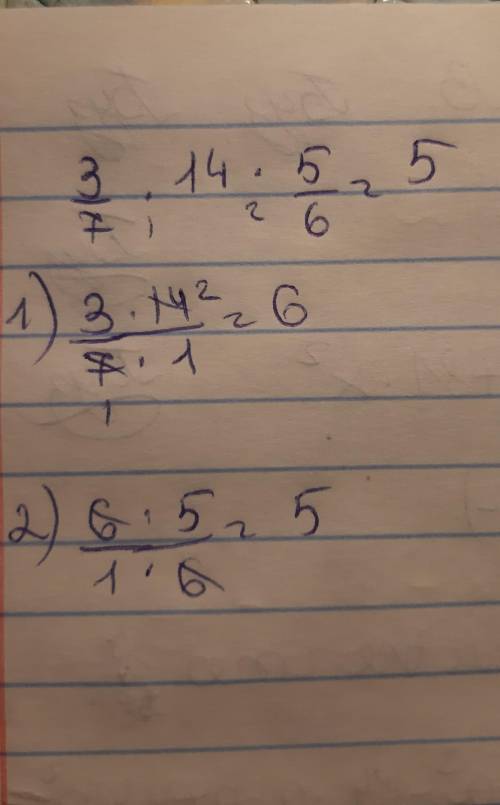 3/7 · 14 · 5/6 = 5
1) 3 · 14 2 / 7 · 1 = 6
1
2) 6 · 5 / 1 · 6 = 5